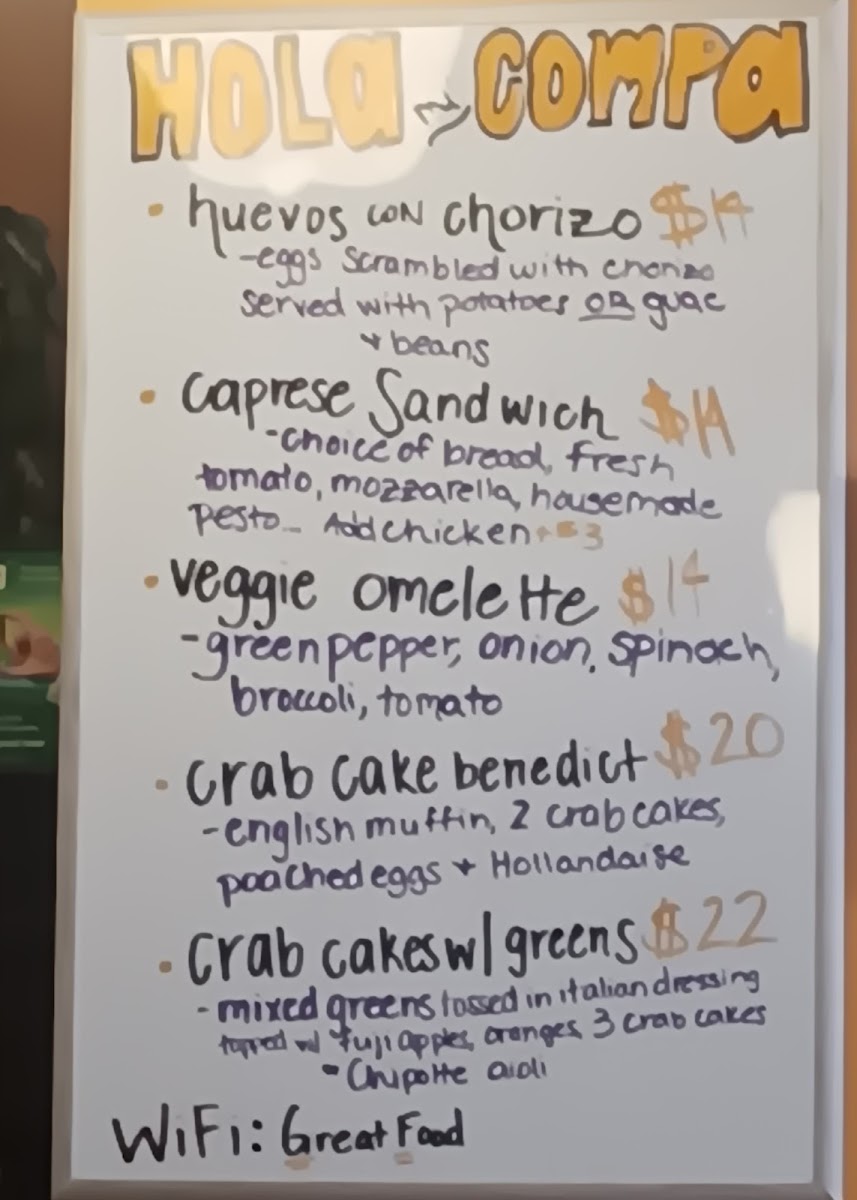 HOLA ~ COMPA
• huevos con chorizo $14
-eggs scrambled with chorizo
served with potatoes OR guac
+ beans
• Caprese Sandwich $14
-choice of bread, fresh
tomato, mozzarella, housemade
pesto... Add chicken + $3
• veggie omelette $14
-green pepper, onion, spinach,
broccoli, tomato
• crab cake benedict $20
-english muffin, 2 crab cakes,
poached eggs + Hollandaise
• crab cakes w/ greens $22
- mixed greens tossed in italian dressing
topped w/ fuji apples, oranges, 3 crab cakes
- Chipotle aioli
WiFi: Great Food